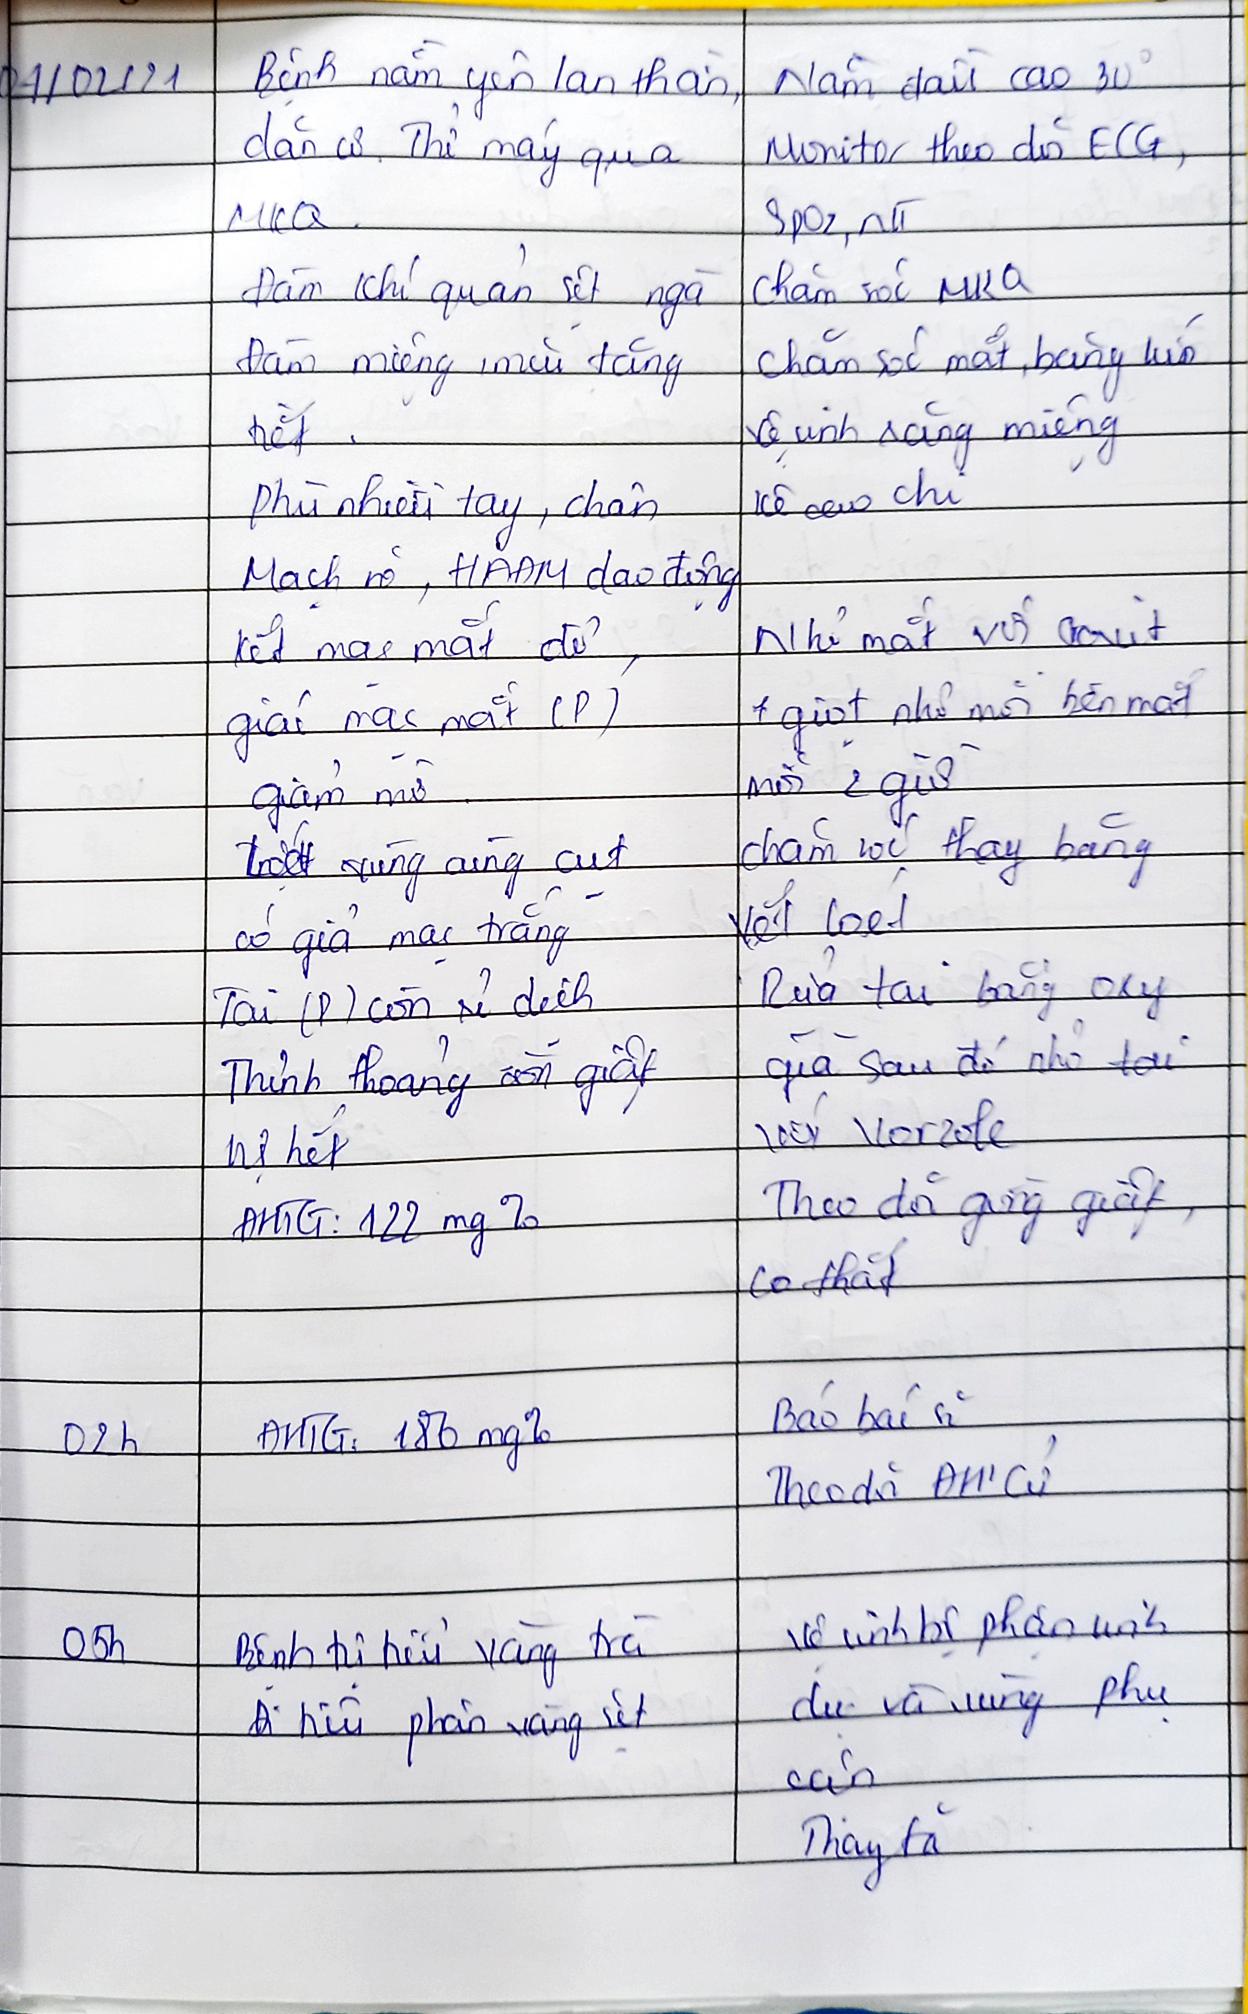 01/02/21
Bệnh nằm yên lan thần,
dãn cơ. Thở máy qua
MKQ.
Đàm khí quản sệt ngà
Đàm miệng, mũi trắng
hết.
phù nhiều tay, chân
Mạch rõ, HAĐM dao động
kết mạc mắt đỏ,
giác mạc mắt (P)
giảm mờ
vùng cùng cụt
có giả mạc trắng
Tai (P) còn rỉ dịch
Thỉnh thoảng còn giật
hết
ĐHTG: 122 mg%
Nằm đầu cao 30°
Monitor theo dõi ECG,
SpO2, NT
chăm sóc MKQ
chăm sóc mắt, băng kín
vệ sinh răng miệng
kê cao chi
Nhỏ mắt với
giọt nhỏ mỗi bên mắt
mỗi 2 giờ
chăm sóc thay băng
vết loét
Rửa tai bằng oxy
già sau đó nhỏ tai
với Vorzole
Theo dõi gồng giật,
co thắt
02h
ĐHTG: 186 mg%
Báo bác sĩ
Theo dõi ĐH
05h
Bệnh tự tiểu vàng trà
tiêu phân vàng sệt
Vệ sinh bộ phận sinh
dục và vùng phụ
cận
Thay tã